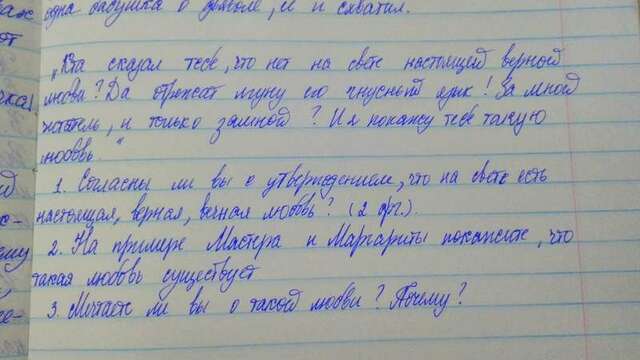 одна бабушка о дьяволе, и и схватил.
„Кто сказал тебе, что нет на свете настоящей верной
любви? Да отрежат лгуну его гнусный язык! За мной
читатель, и только замной? И я покажу тебе такую
любовь."
1. Согласны ли вы с утверждением, что на свете есть
настоящая, верная, вечная любовь? (2 арг.).
2. На примере Мастера и Маргариты покажите, что
такая любовь существует
3. Мечтаете ли вы о такой любви? Почему?